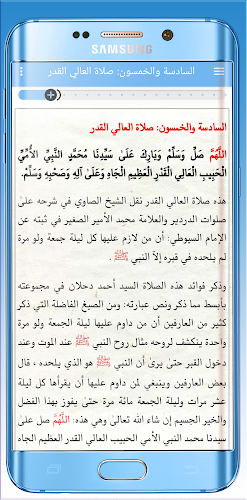 SAMSUNG
السادسة والخمسون: صلاة العالي القدر
السادسة والخمسون: صلاة العالي القدر
اللَّهُمَّ صَلِّ وَسَلِّمْ وَبَارِكْ عَلَىٰ سَيِّدِنَا مُحَمَّدٍ النَّبِيِّ الأُمِّيِّ
الْحَبِيبِ الْعَالِي الْقَدْرِ الْعَظِيمِ الْجَاهِ وَعَلَىٰ آلِهِ وَصَحْبِهِ وَسَلِّمْ.
هذه صلاة العالي القدر نقل الشيخ الصاوي في شرحه على
صلوات الدردير والعلامة محمد الأمير الصغير في ثبته عن
الإمام السيوطي: أن من لازم عليها كل ليلة جمعة ولو مرة
لم يلحده في قبره إلا النبي ﷺ .
وذكر فوائد هذه الصلاة السيد أحمد دحلان في مجموعته
بأبسط مما ذكر ونص عبارته: ومن الصيغ الفاضلة التي ذكر
كثير من العارفين أن من داوم عليها ليلة الجمعة ولو مرة
واحدة ينكشف لروحه مثال روح النبي ﷺ عند الموت وعند
دخول القبر حتىٰ يرىٰ أن النبي ﷺ هو الذي يلحده ، قال
بعض العارفين وينبغي لمن داوم عليها أن يقرأها كل ليلة
عشر مرات وليلة الجمعة مائة مرة حتىٰ يفوز بهذا الفضل
والخير الجسيم إن شاء الله تعالىٰ وهي هذه: اللَّهُمَّ صل علىٰ
سيدنا محمد النبي الأمي الحبيب العالي القدر العظيم الجاه